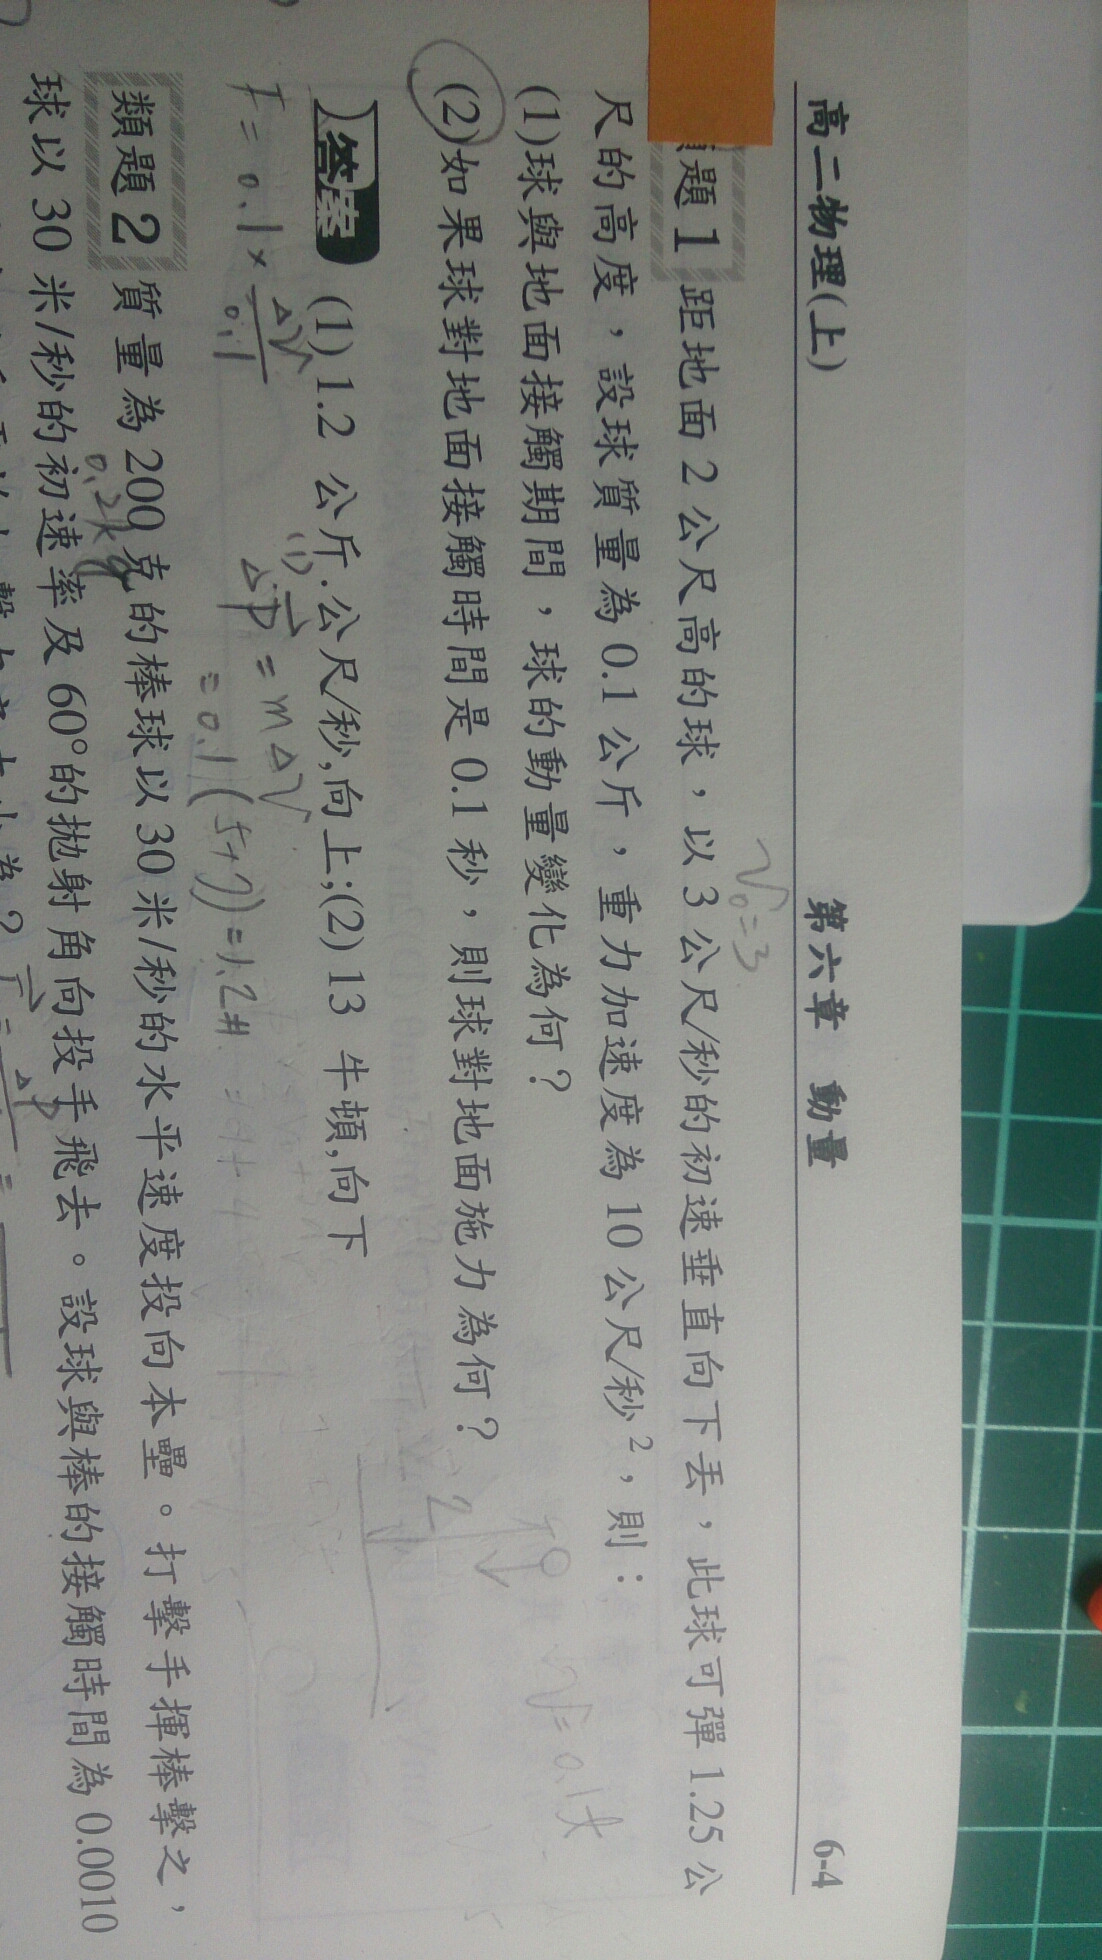 高二物理(上) 第六章 動量 6-4
題1 距地面 2 公尺高的球，以 3 公尺/秒的初速垂直向下丟，此球可彈 1.25 公
V₀=3
尺的高度，設球質量為 0.1 公斤，重力加速度為 10 公尺/秒²，則：
(1)球與地面接觸期間，球的動量變化為何？
(2)如果球對地面接觸時間是 0.1 秒，則球對地面施力為何？
答案 (1) 1.2 公斤·公尺/秒,向上;(2) 13 牛頓,向下
F = 0.1 × ΔV/0.1
(1) ΔP = mΔV
= 0.1(5+7) = 1.2#
類題2 質量為 200 克的棒球以 30 米/秒的水平速度投向本壘。打擊手揮棒擊之，
0.2kg
球以 30 米/秒的初速率及 60°的拋射角向投手飛去。設球與棒的接觸時間為 0.0010